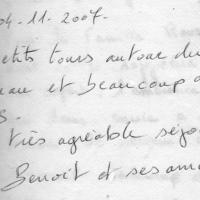 04-11-2007.
etits tours autour du
eau et beaucoup d
s.
très agréable séjou
Benoît et ses am